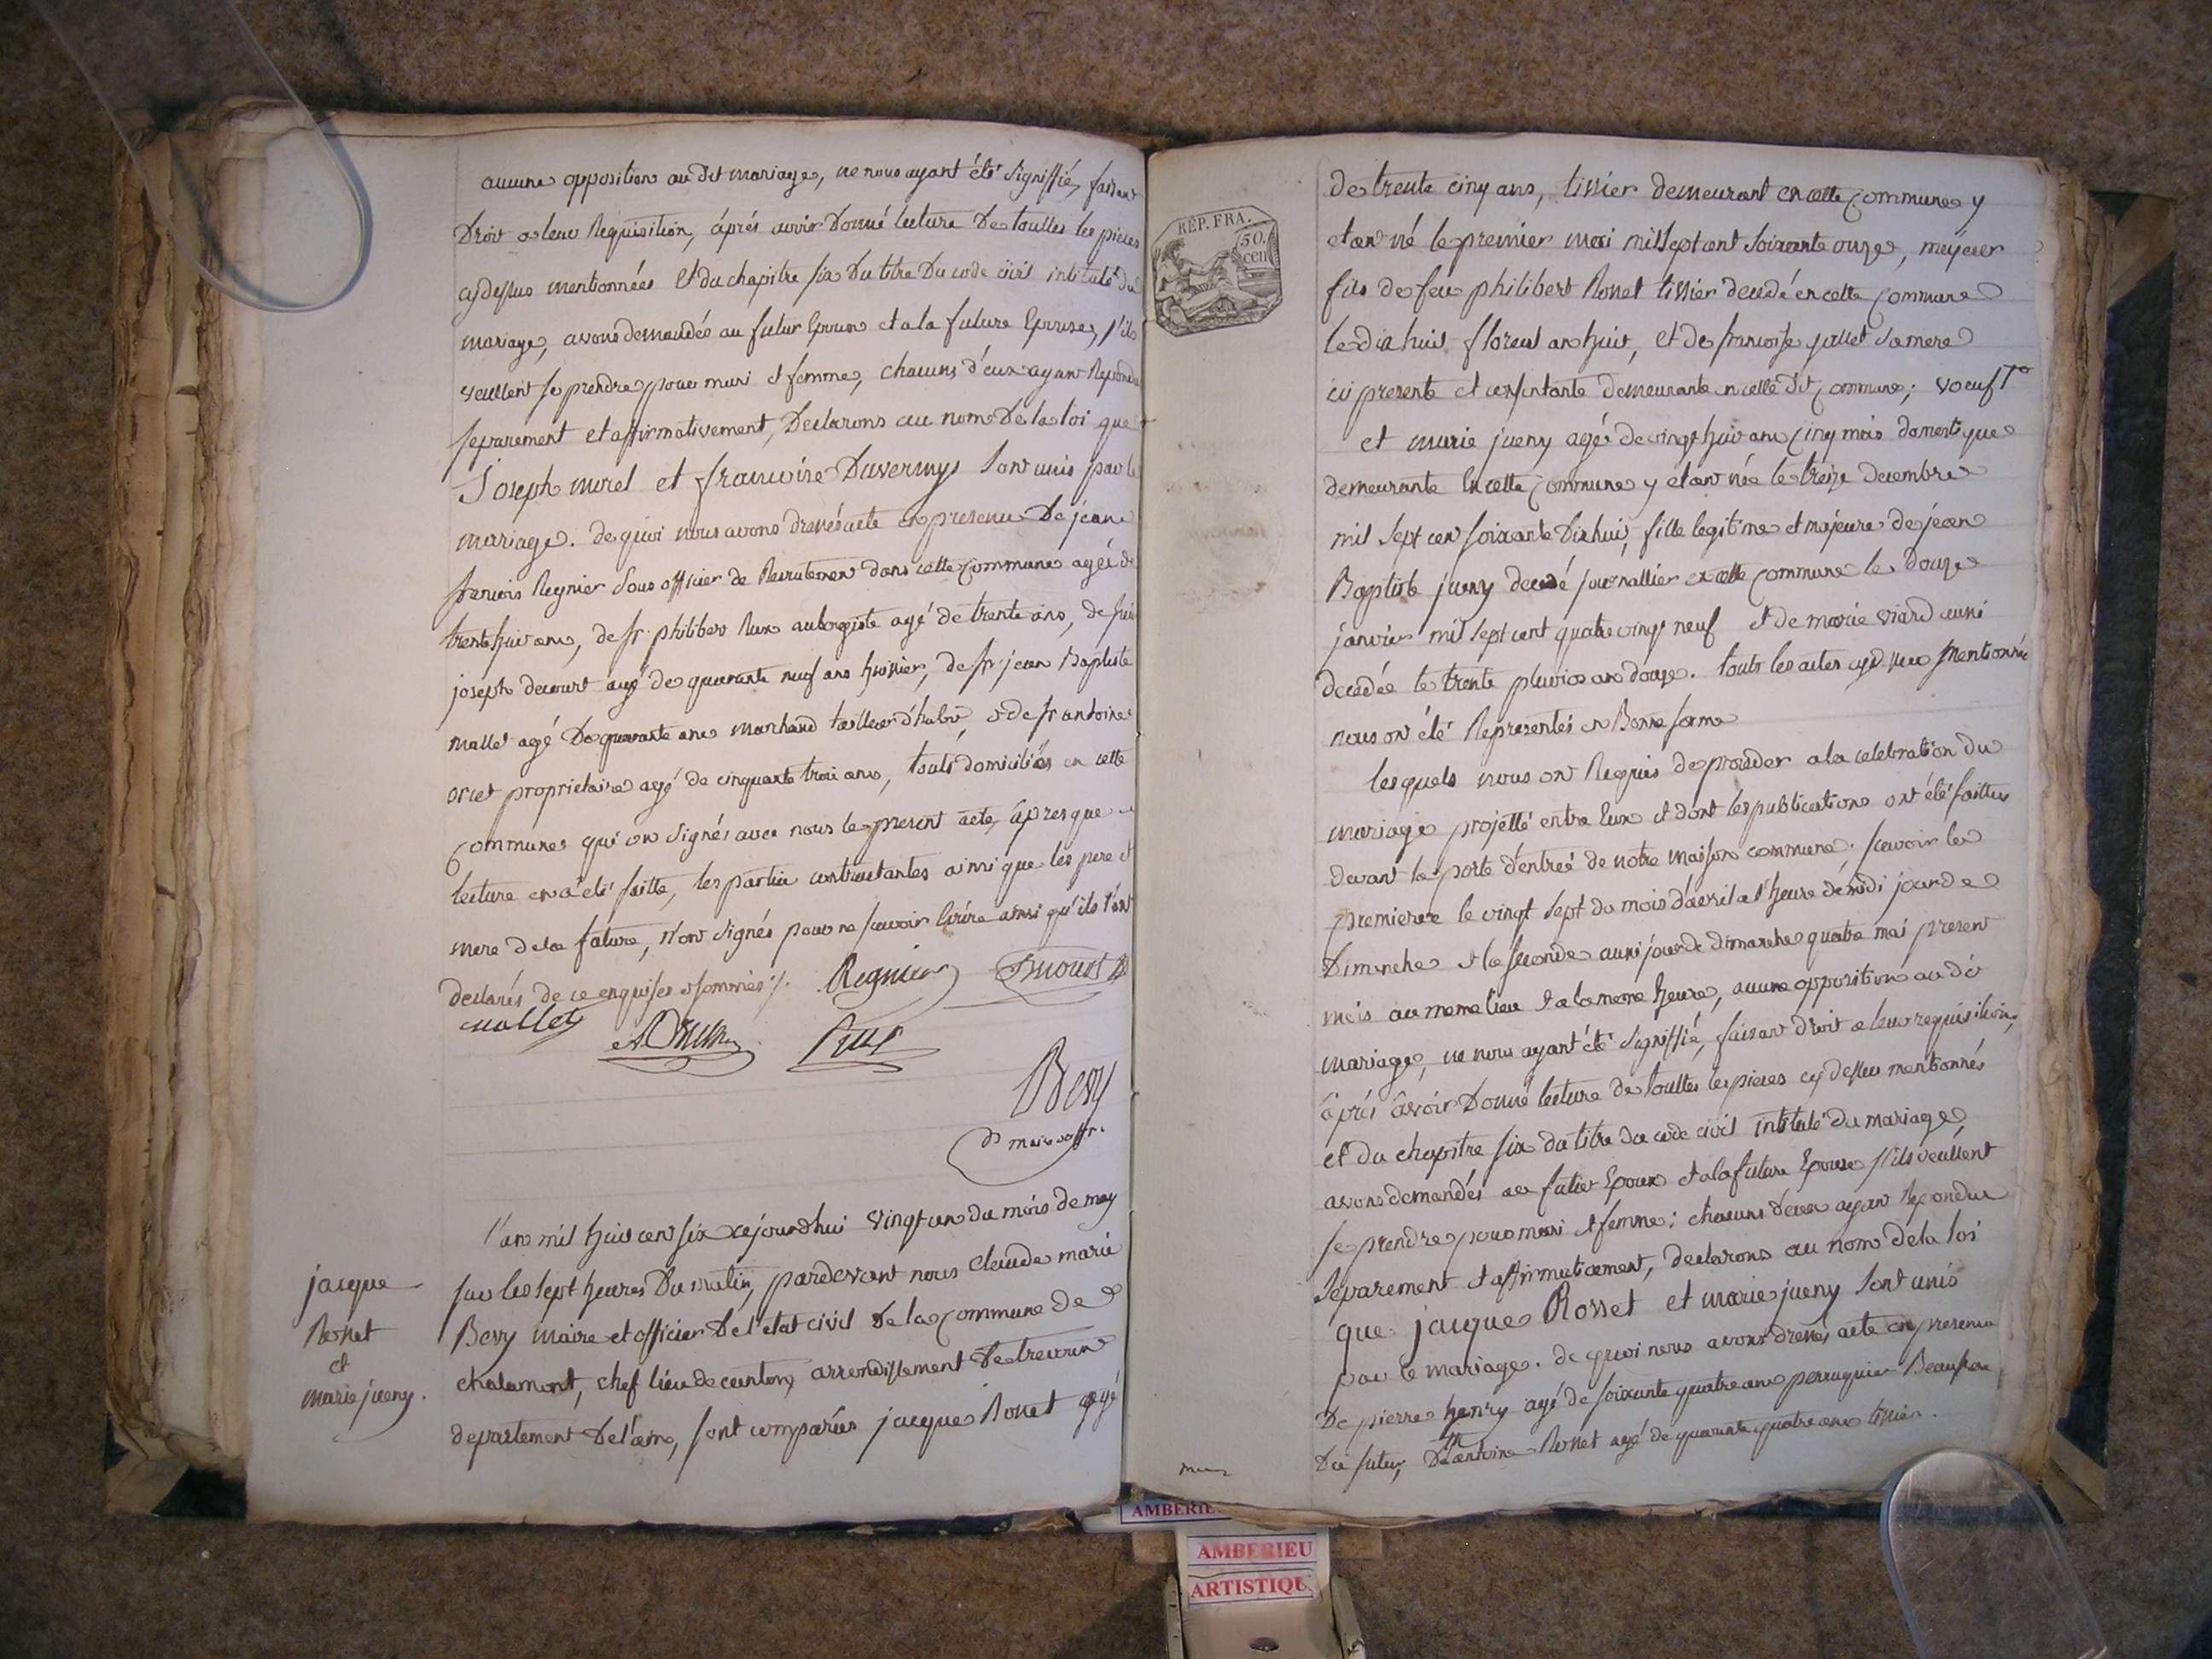 aucune opposition au dit mariage, ne nous ayant été signiffié, faisant
Droit a leur Requisition, áprés avoir Donné lecture De touttes les pieces
cy dessus mentionnées et du chapitre six Du titre Du code civil intitulé du
mariage, avons demandés au futur Epoux et a la future Epouse, s'ils
veullent se prendre pour mari et femme, chacuns d'eux ayant Repondu
separement et affirmativement, Declarons au nom De la loi que
Joseph morel et francoise Duvernys sont unis par le
mariage. de quoi nous avons dressés acte en presence De jean
francois Regnier sous officier de Recrutement dans cette commune agée de
trente huit ans, de sr. philibert Rux aubergiste agé de trente ans, de sieur
joseph decourt agé de quarante neuf ans huissier, de sr. jean Baptiste
mallet agé De quarante ans marchand tailleur d'habit, et de sr antoine
orset proprietaire agé de cinquante trois ans, touts domiciliés en cette
commune qui on signés avec nous le present acte, ápres que
lecture en a été faitte, les partie contractantes ainsi que les pere et
mere de la future, n'ont signés pour ne scavoir Ecrire ainsi qu'ils l'ont
declarés de ce enquises et sommés ./. Regnier
mallet
Rux
Bevy
mair et offr.
jacque
Rosset
et
marie jueny.
l'an mil huit cent six cejourdhui vingt un du mois de may
sur les sept heures Du matin, pardevant nous claude marie
Bevy maire et officier De l'etat civil De la commune de
chalamont, chef lieu de canton, arrondissement De trevoux
departement De l'ain, sont comparües jacque Rosset agé
RÉP. FRA.
50.
cen
de trente cinq ans, tissier demeurant en cette commune y
etant né le premier mai mil sept cent soixante onze, majeur
fils de feu philibert Rosset tissier decedé en cette commune
le dix huit floreal an huit, et de francoise jallet sa mere
ici presente et consentante demeurante en cette dit commune; voeuf
et marie jueny agée de vingt huit ans cinq mois domestique
demeurante En cette commune y etant née le treize decembre
mil sept cent soixante Dix huit, fille legitime et majeure de jean
Baptiste jueny decedé journallier en cette commune le douze
janvier mil sept cent quatre vingt neuf et de marie viard aussi
decedée le trente pluviose an douze. touts les actes cy dessus mentionnés
nous on été Representés en Bonne forme
lesquels nous ont Requis de proceder a la celebration du
mariage projetté entre Eux et dont les publications ont été faittes
devant la porte d'entreé de notre maison commune; scavoir la
premiere le vingt sept du mois d'avril a l'heure de midi jour de
Dimanche et la seconde aussi jour de dimanche quatre mai present
mois au meme lieu et a la meme heure, aucune opposition au dit
mariage, ne nous ayant été signiffié, faisant droit a leur requisition,
áprés ávoir Donné lecture de touttes les pieces cy dessus mentionnés
et du chapitre six du titre du code civil intitulé du mariage,
avons demandés au futur Epoux et a la future Epouse s'ils veullent
se prendre pour mari et femme; chacuns d'eux ayant Repondu
separement et affirmativement, declarons au nom de la loi
que jacque Rosset et marie jueny sont unis
par le mariage. de quoi nous avons dressés acte en presence
De pierre henry agé de soixante quatre ans perruquier Beaufrere
Du futur, De antoine Rosset agé de quarante quatre ans tissier.
AMBERIEU
AMBERIEU
ARTISTIQU